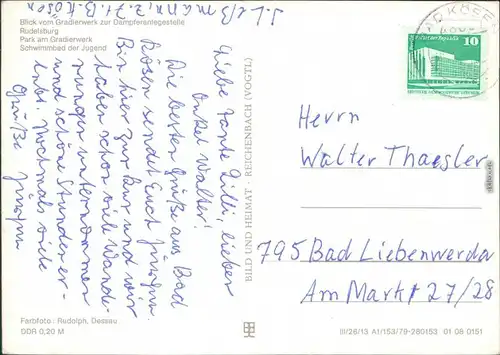 J. Leßmann, z. Zt. B. Kösen
Blick vom Gradierwerk zur Dampferanlegestelle
Rudelsburg
Park am Gradierwerk
Schwimmbad der Jugend
Liebe Tante Lilli, lieber
Onkel Walter!
Die besten Grüße aus Bad
Kösen sendet Euch Jürgen.
Bin hier zur Kur und wir
haben schon viele Wande-
rungen unternommen
und schöne Stunden er-
lebt. Nochmals viele
Grüße Jürgen
Farbfoto: Rudolph, Dessau
DDR 0,20 M
BILD UND HEIMAT REICHENBACH (VOGTL)
BAD KÖSEN
10
Herrn
Walter Thaesler
795 Bad Liebenwerda
Am Markt 27/28
III/26/13 A1/153/79-280153 01 08 0151